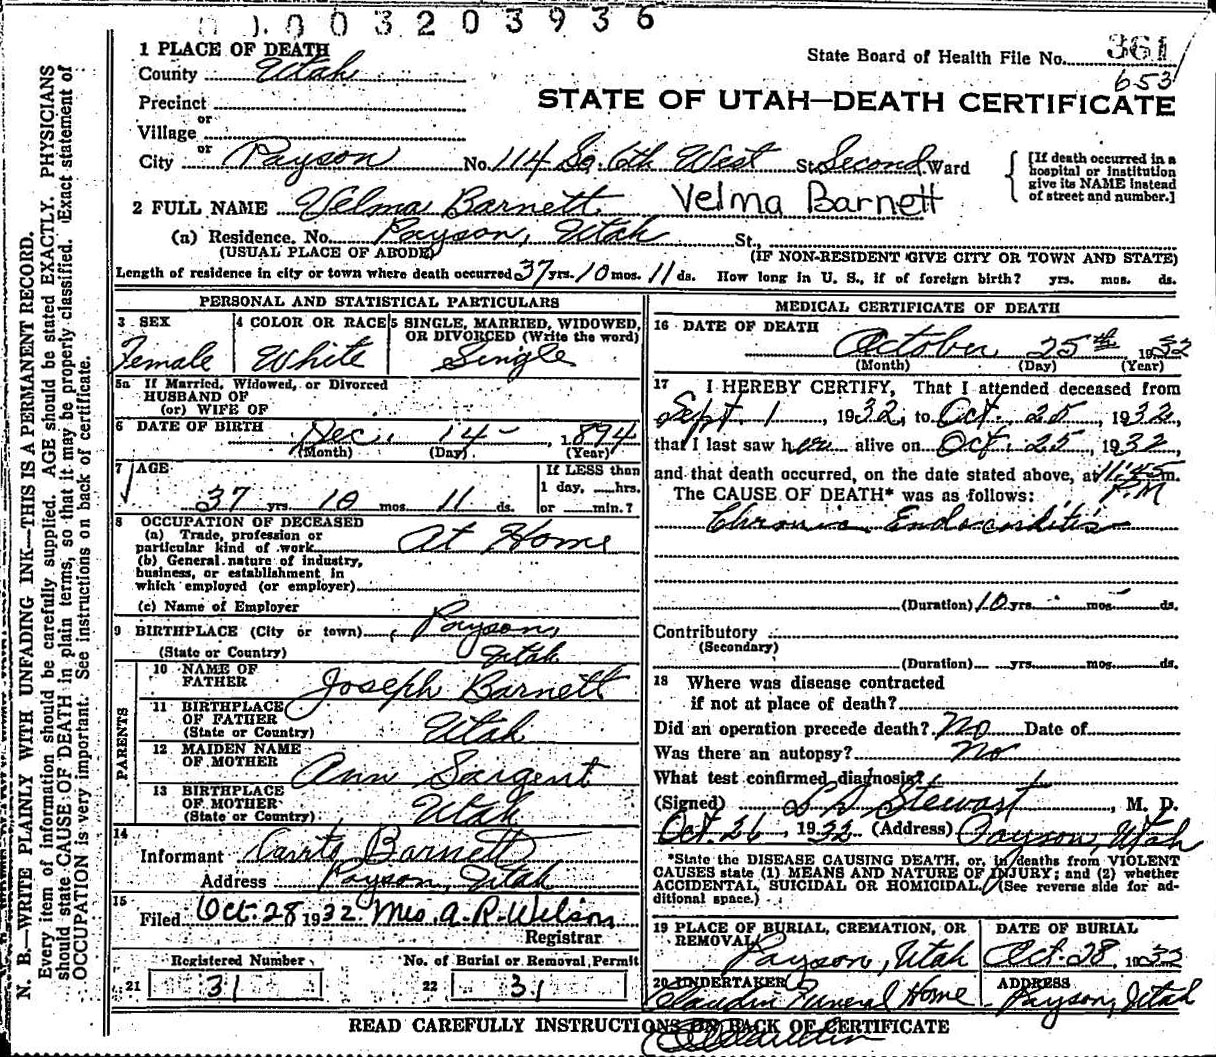 0 0 0 3 2 0 3 9 3 6
1 PLACE OF DEATH
County Utah
State Board of Health File No. 361
653
Precinct
or
Village
or
STATE OF UTAH—DEATH CERTIFICATE
City Payson No. 114 So. 6th West St. Second Ward
[If death occurred in a
hospital or institution
give its NAME instead
of street and number.]
2 FULL NAME Velma Barnett Velma Barnett
(a) Residence. No. Payson, Utah St.,
(USUAL PLACE OF ABODE) (IF NON-RESIDENT GIVE CITY OR TOWN AND STATE)
Length of residence in city or town where death occurred 37 yrs. 10 mos. 11 ds. How long in U. S., if of foreign birth? yrs. mos. ds.
N. B.—WRITE PLAINLY WITH UNFADING INK—THIS IS A PERMANENT RECORD.
Every item of information should be carefully supplied. AGE should be stated EXACTLY. PHYSICIANS
should state CAUSE OF DEATH in plain terms, so that it may be properly classified. Exact statement of
OCCUPATION is very important. See instructions on back of certificate.
PERSONAL AND STATISTICAL PARTICULARS
3 SEX
Female
4 COLOR OR RACE
White
5 SINGLE, MARRIED, WIDOWED,
OR DIVORCED (Write the word)
Single
5a If Married, Widowed, or Divorced
HUSBAND OF
(or) WIFE OF
6 DATE OF BIRTH Dec. 14 - , 1894
(Month) (Day) (Year)
7 AGE
37 yrs 10 mos 11 ds.
If LESS than
1 day, ......hrs.
or ......min.?
8 OCCUPATION OF DECEASED
(a) Trade, profession or
particular kind of work At Home
(b) General nature of industry,
business, or establishment in
which employed (or employer)
(c) Name of Employer
9 BIRTHPLACE (City or town) Payson,
(State or Country) Utah
PARENTS
10 NAME OF
FATHER Joseph Barnett
11 BIRTHPLACE
OF FATHER
(State or Country) Utah
12 MAIDEN NAME
OF MOTHER Ann Sargent
13 BIRTHPLACE
OF MOTHER
(State or Country) Utah
14
Informant Barnett
Address Payson, Utah
15
Filed Oct. 28 1932 Mrs. A. R. Wilson
Registrar
Registered Number
21 31
No. of Burial or Removal Permit
22 31
MEDICAL CERTIFICATE OF DEATH
16 DATE OF DEATH
October 25th 1932
(Month) (Day) (Year)
17 I HEREBY CERTIFY, That I attended deceased from
Sept. 1, 1932, to Oct. 25, 1932,
that I last saw her alive on Oct. 25, 1932,
and that death occurred, on the date stated above, at 11:45 m.
P.M
The CAUSE OF DEATH* was as follows:
Chronic Endocarditis
(Duration) 10 yrs. - mos. - ds.
Contributory
(Secondary)
(Duration) yrs. mos. ds.
18 Where was disease contracted
if not at place of death?
Did an operation precede death? No Date of
Was there an autopsy? No
What test confirmed diagnosis?
(Signed) Stewart, M. D.
Oct. 26, 1932 (Address) Payson, Utah
*State the DISEASE CAUSING DEATH, or, in deaths from VIOLENT
CAUSES state (1) MEANS AND NATURE OF INJURY; and (2) whether
ACCIDENTAL, SUICIDAL OR HOMICIDAL. (See reverse side for ad-
ditional space.)
19 PLACE OF BURIAL, CREMATION, OR
REMOVAL
Payson, Utah
DATE OF BURIAL
Oct. 28 1932
20 UNDERTAKER
Claudin Funeral Home
ADDRESS
Payson, Utah
READ CAREFULLY INSTRUCTIONS ON BACK OF CERTIFICATE